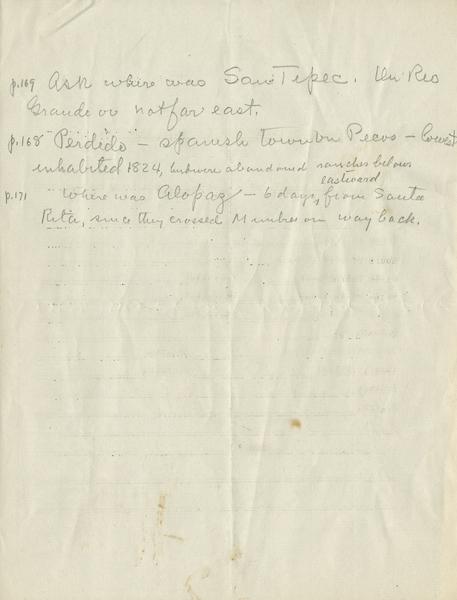 p.169 Ask where was San Tepec. On Rio
Grande or not far east.
p.168 "Perdido" - Spanish town on Pecos - lowest
inhabited 1824, but were abandoned ranches below
eastward
p.171 Where was Alopaz - 6 days, from Santa
Rita, since they crossed Mimbres on way back.